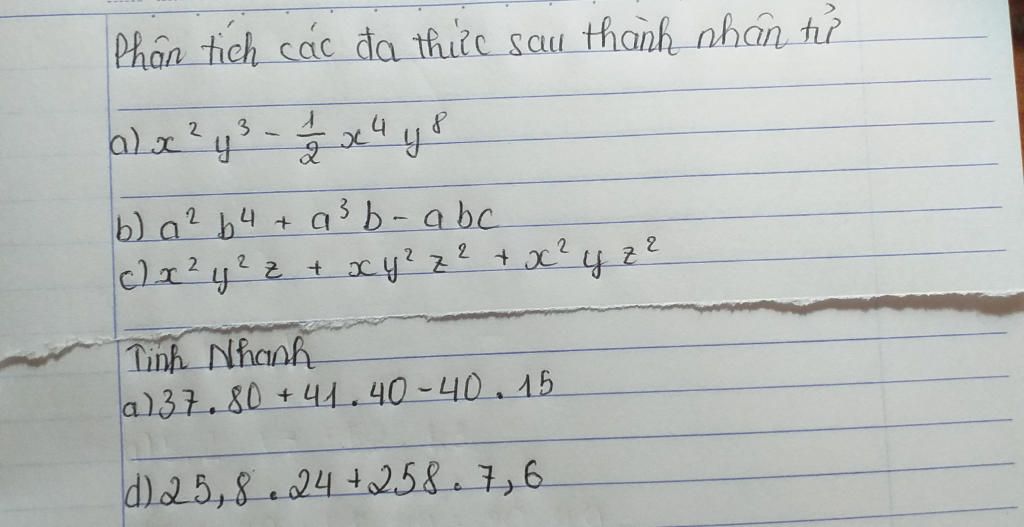 Phân tích các đa thức sau thành nhân tử
a) x² y³ - 1/2 x⁴ y⁸
b) a² b⁴ + a³ b - abc
c) x² y² z + xy² z² + x² y z²
Tính Nhanh
a) 37 . 80 + 41 . 40 - 40 . 15
d) 25,8 . 24 + 258 . 7,6